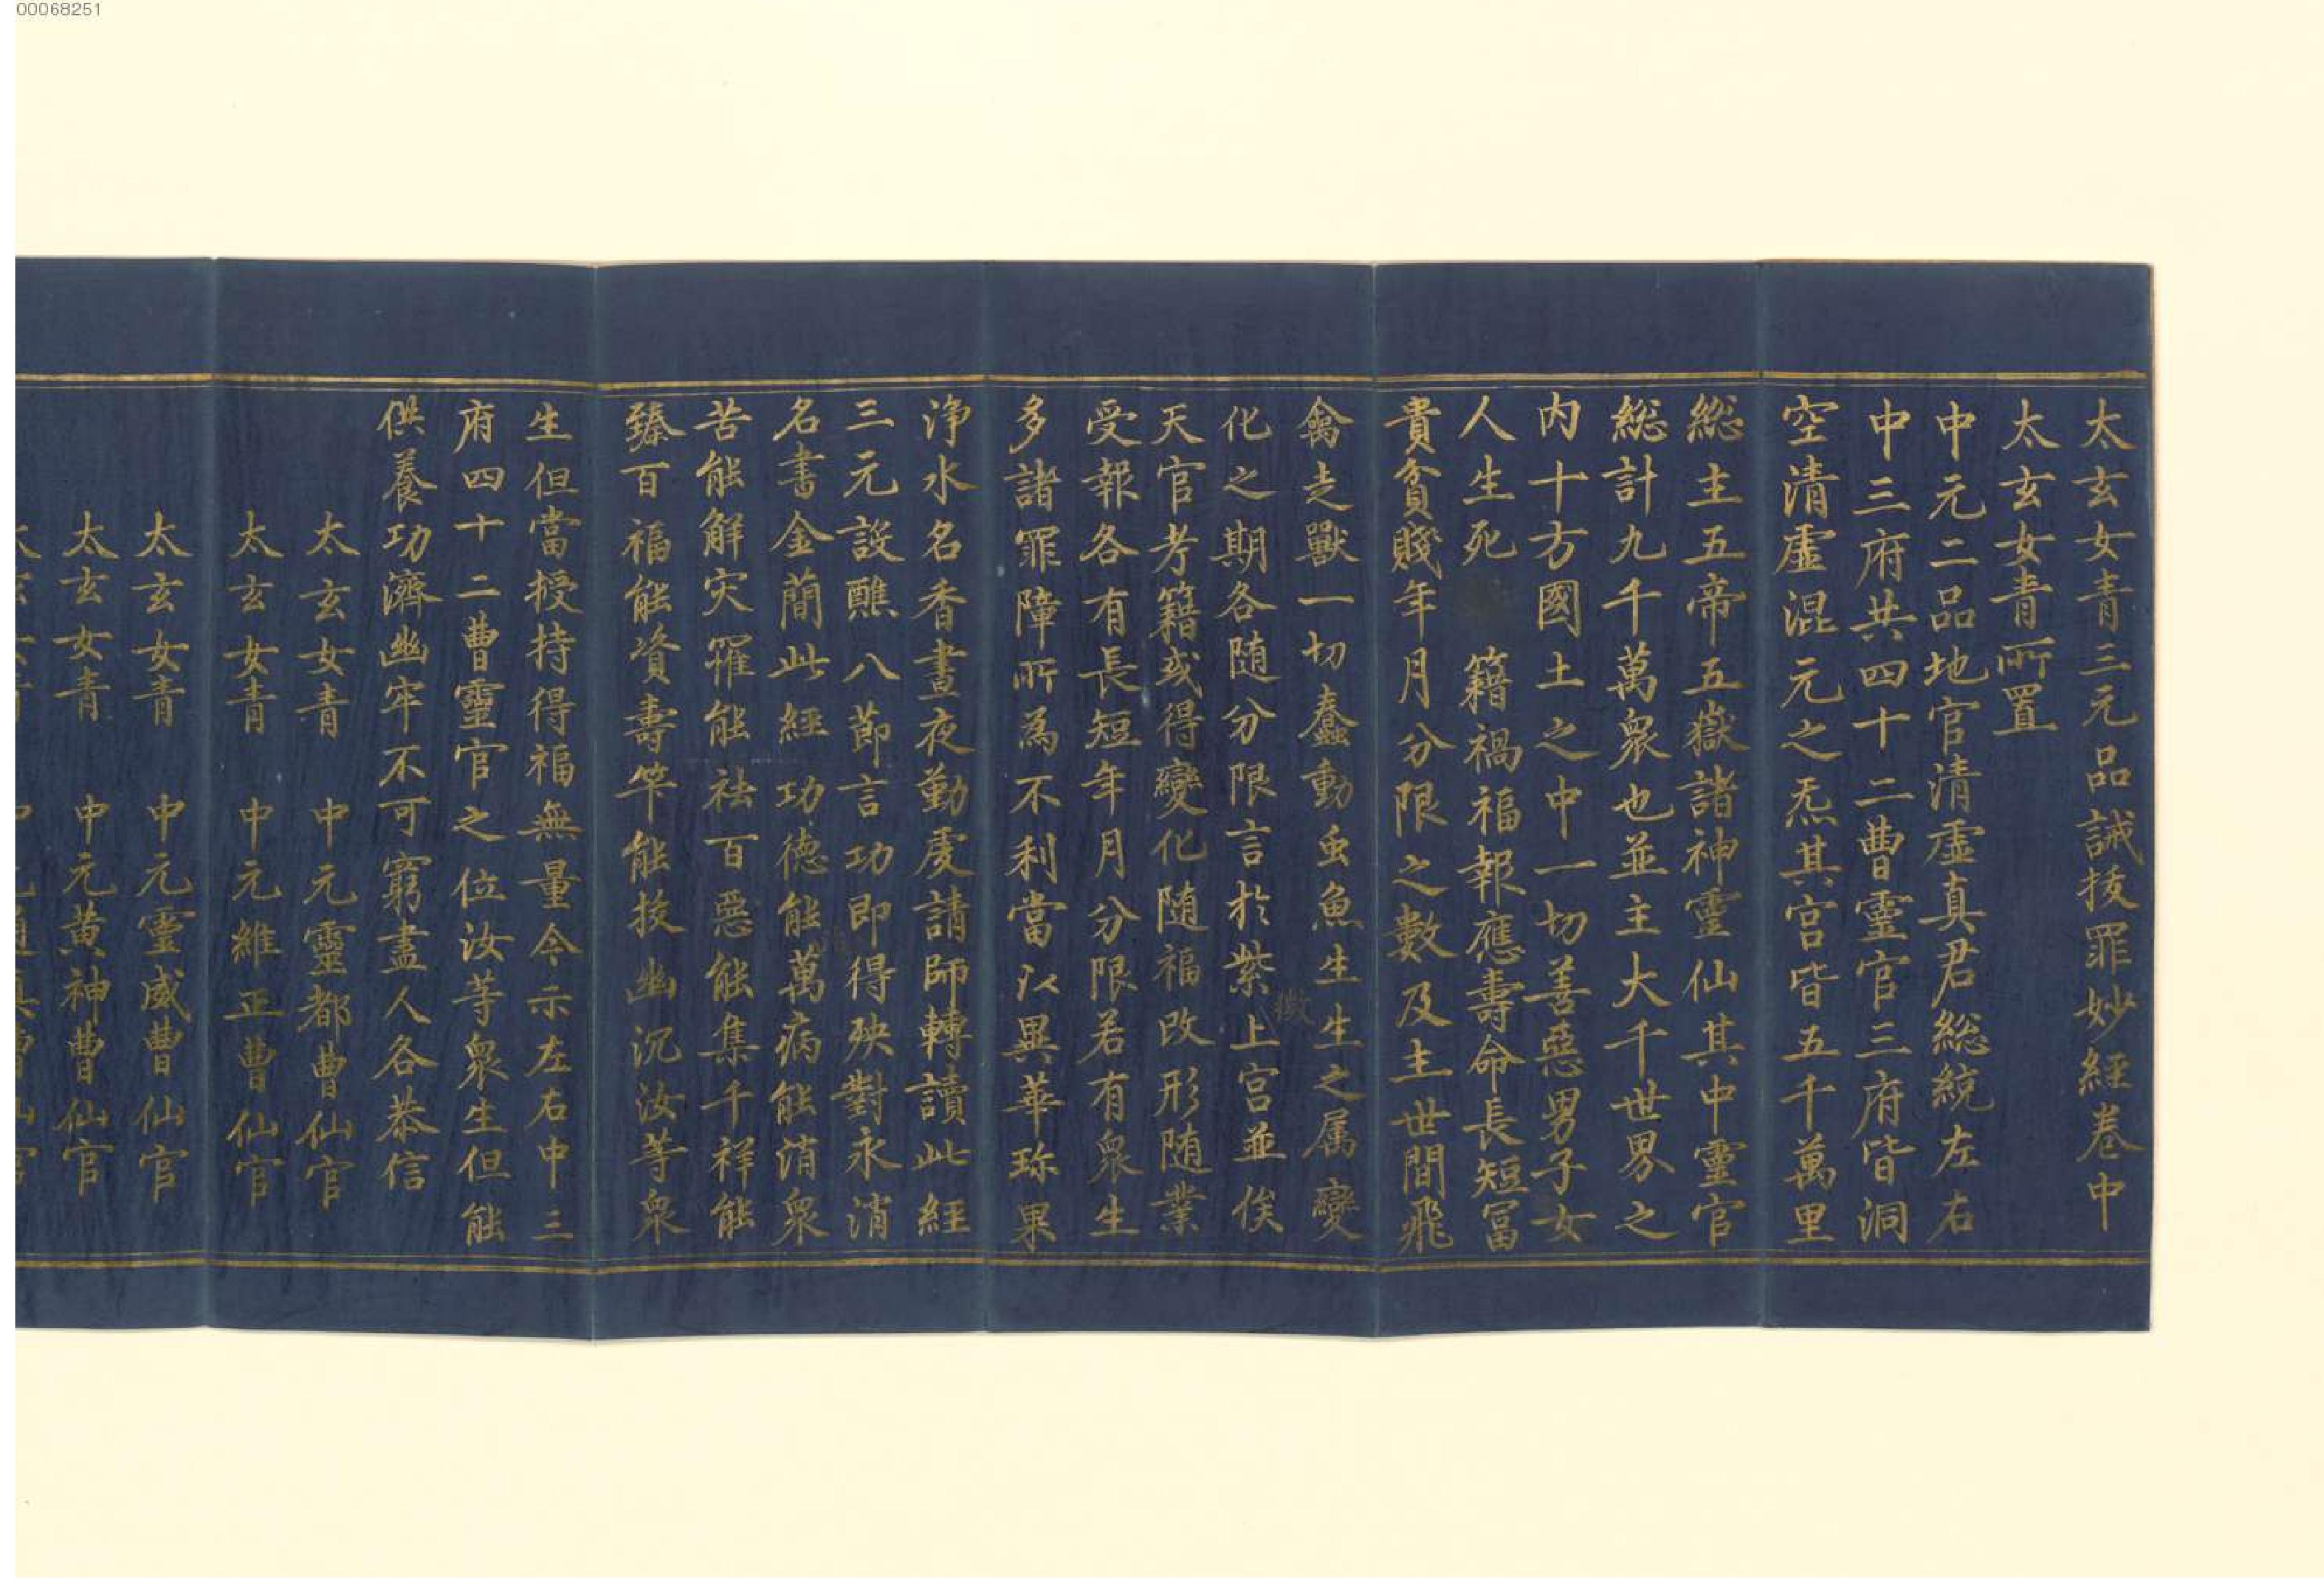 00068251
太玄女青三元品誡拔罪妙經卷中
太玄女青所置
中元二品地官清虛真君総統左右
中三府共四十二曹靈官三府皆洞
空清虛混元之炁其宮皆五千萬里
総主五帝五嶽諸神靈仙其中靈官
総計九千萬衆也並主大千世界之
内十方國土之中一切善惡男子女
人生死 籍禍福報應壽命長短冨
貴貧賤年月分限之數及主世間飛
禽走獸一切蠢動虫魚生生之属變
化之期各随分限言於紫上宮並俟
微
天官考籍或得變化随福改形随業
受報各有長短年月分限若有衆生
多諸罪障所為不利當以異華珎果
淨水名香晝夜勤虔請師轉讀此經
三元設醮八節言功即得殃對永消
名書金簡此經功德能萬病能消衆
苦能解灾罹能祛百惡能集千祥能
臻百福能資壽筭能拔幽沉汝等衆
生但當授持得福無量令示左右中三
府四十二曹靈官之位汝等衆生但能
供養功濟幽牢不可窮盡人各恭信
太玄女青 中元靈都曹仙官
太玄女青 中元維正曹仙官
太玄女青 中元靈威曹仙官
太玄女青 中元黄神曹仙官